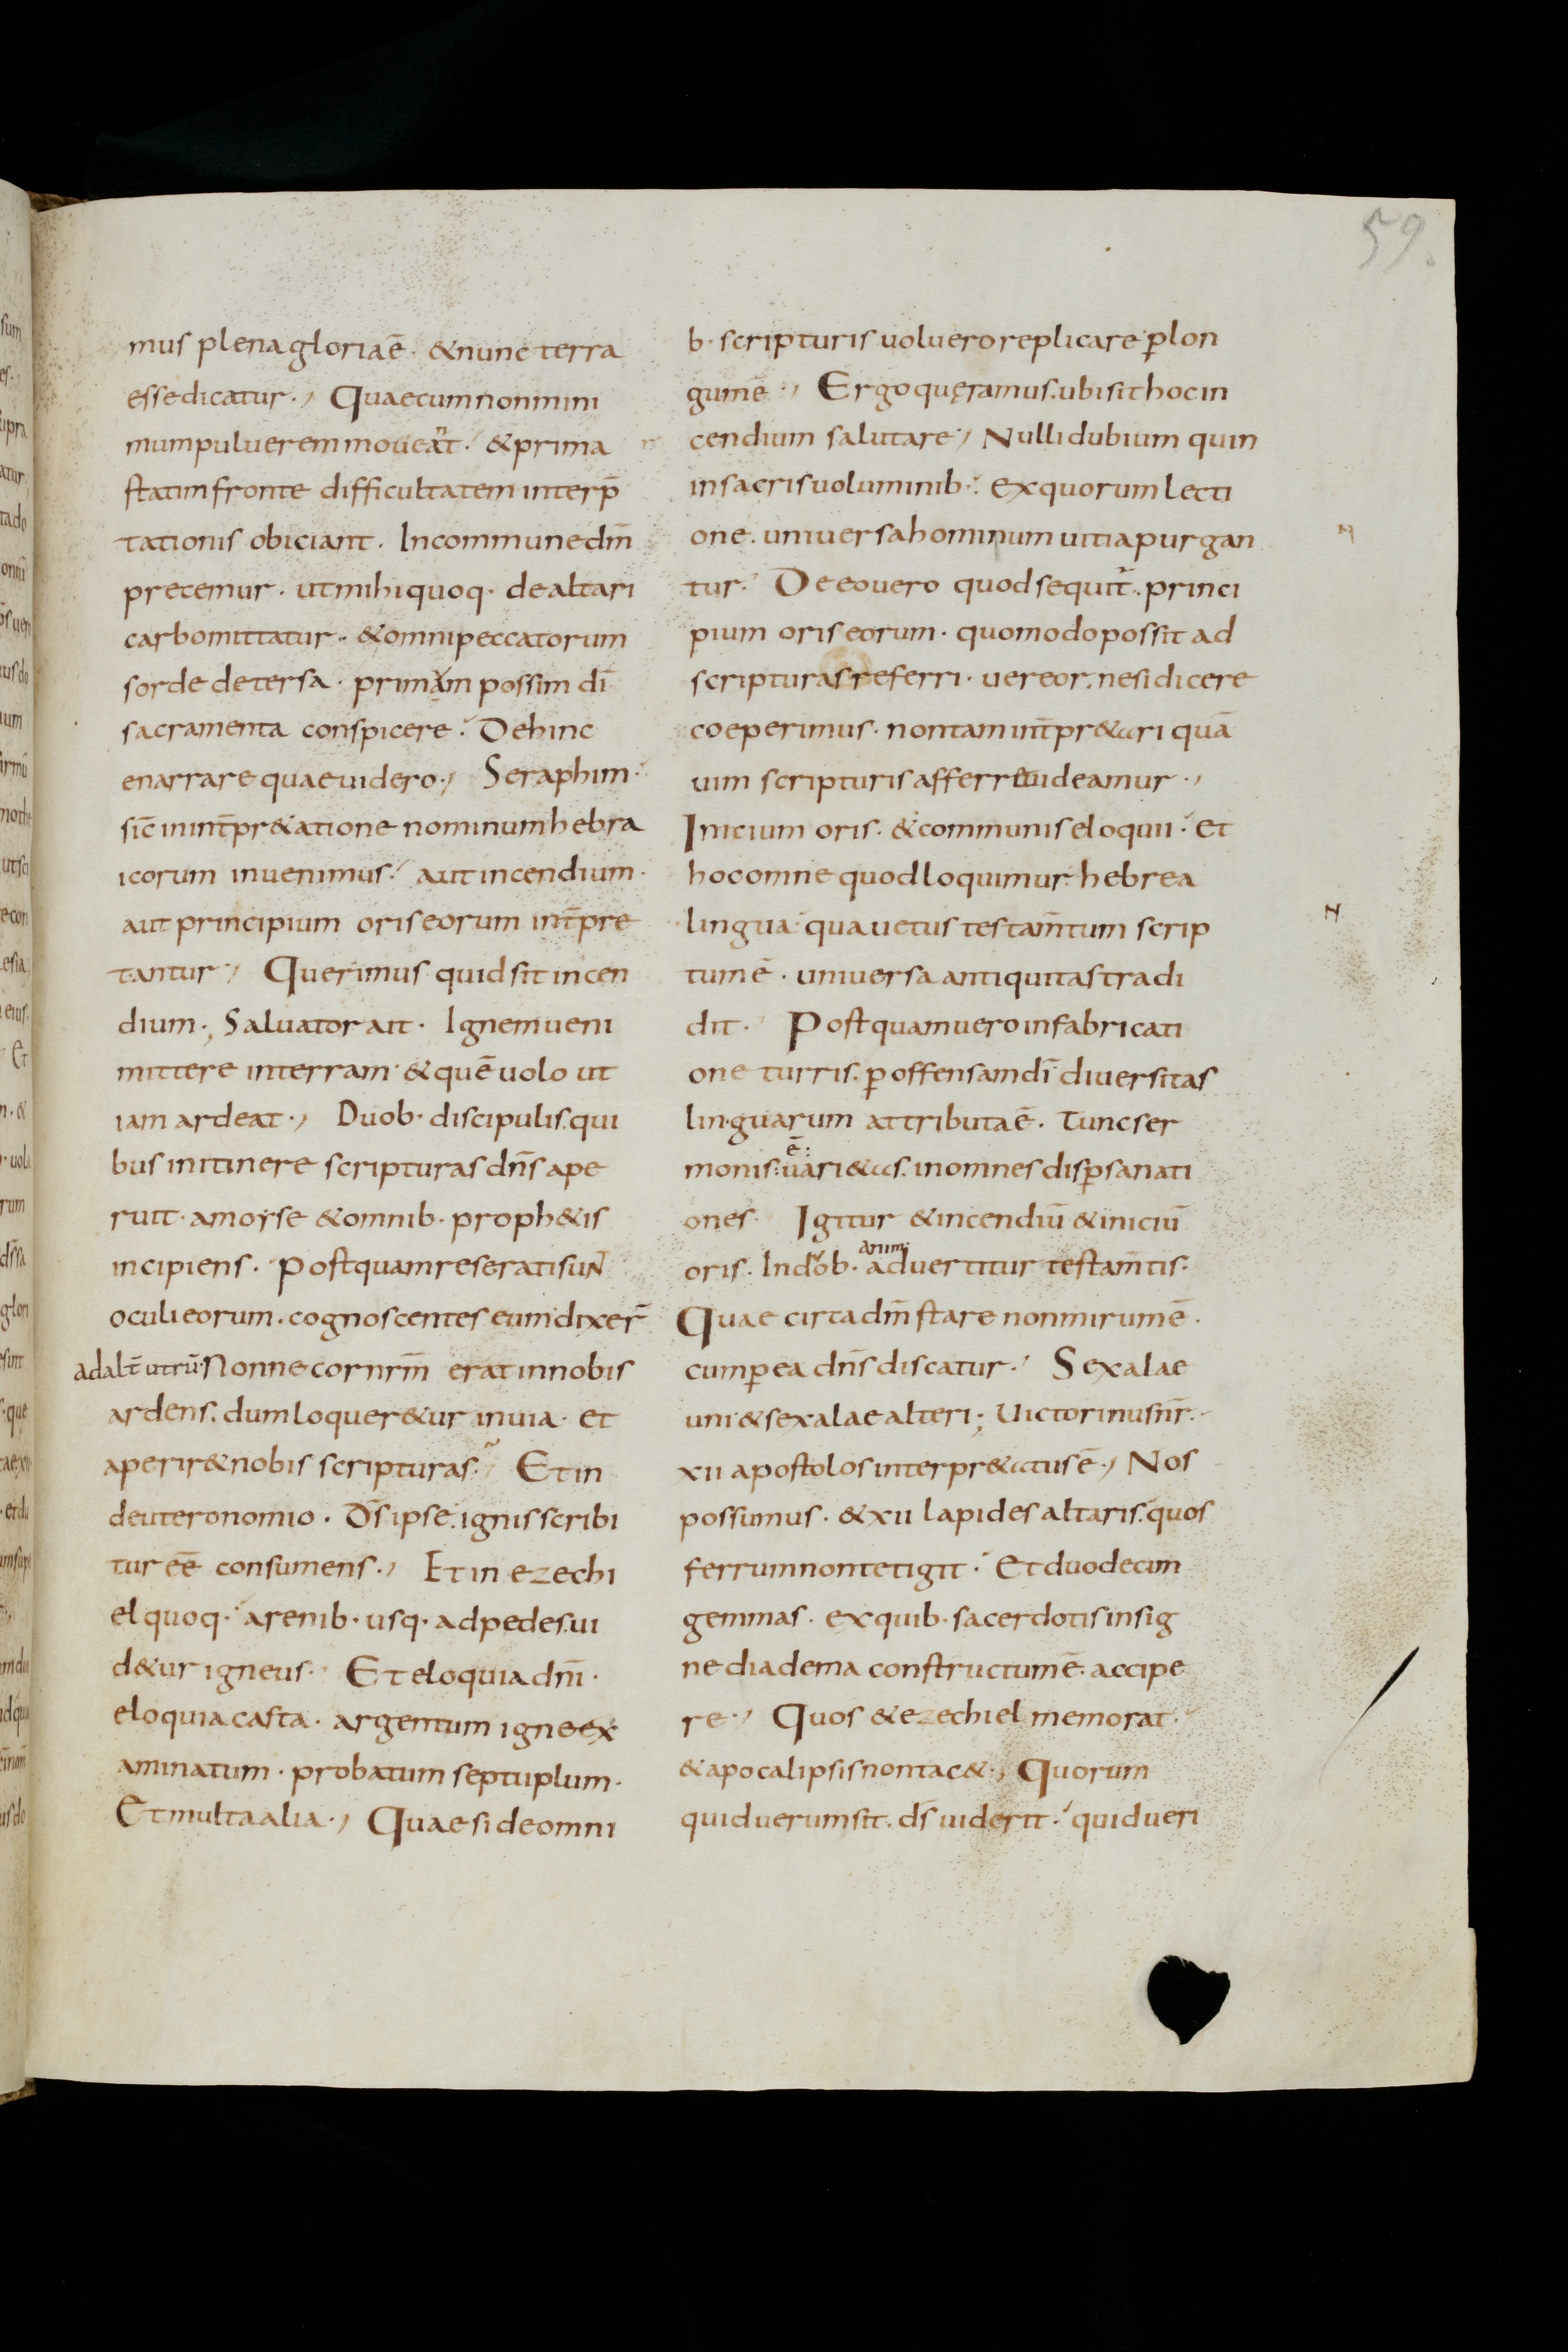 59.
mus plena gloria ē· & nunc terra
esse dicatur·, Quae cum non mini
mum puluerem moueat· & prima
statim fronte difficultatem interp̄
tationis obiciant· In commune dn̄m
precemur· ut mihi quoq· de altari
carbo mittatur· & omni peccatorum
sorde detersa· primum possim dī
sacramenta conspicere· Dehinc
enarrare quae uidero·, Seraphim·
sic̄ in int̄pr&atione nominum hebra
icorum inuenimus· aut incendium·
aut principium oris eorum int̄pre
tantur·, Querimus quid sit incen
dium·, Saluator ait· Ignem ueni
mittere in terram· & quē uolo ut
iam ardeat·, Duob· discipulis· qui
bus in itinere scripturas dn̄s ape
ruit· a moyse & omnib· proph&is
incipiens· Postquam reserati suN̄
oculi eorum· cognoscentes eum dixer̄
ad alt̄ utrū· Nonne cor nr̄m erat in nobis
ardens· dum loquer&ur in uia· et
aperir& nobis scripturas·, Et in
deuteronomio· Ds̄ ipse· ignis scribi
tur eē consumens·, Et in ezechi
el quoq· a renib· usq· ad pedes· ui
d&ur igneus· Et eloquia dn̄i·
eloquia casta· argentum igne ex
aminatum· probatum septuplum·
Et multa alia·, Quae si de omni
b· scripturis uoluero replicare p̱lon
gum ē·, Ergo quęramus· ubi sit hoc in
cendium salutare·, Nulli dubium quin
in sacris uoluminib·: ex quorum lecti
one· uniuersa hominum uitia purgan
tur· De eo uero quod sequit̄· princi
pium oris eorum· quomodo possit ad
scripturas referri· uereor· ne si dicere
coeperimus· non tam int̄pr&ari quā
uim scripturis afferre uideamur·,
Inicium oris· & communis eloquii· et
hoc omne quod loquimur· hebrea
lingua· qua uetus testam̄tum scrip
tum ē· uniuersa antiquitas tradi
dit· Postquam uero in fabricati
one turris· p̱ offensam dī diuersitas
linguarum attributa ē· Tunc ser
ē:
monis: uari&as· in omnes disp̱sa nati
ones· Igitur & incendiū & iniciū
anim
oris· In duob· aduertitur testam̄tis·
Quae circa dm̄ stare non mirum ē·
cum p̱ ea dn̄s discatur· Sex alae
uni & sex alae alteri·, Uictorinus nr̄·
xii apostolos interpr&atus ē·, Nos
possumus· & xii lapides altaris· quos
ferrum non tetigit· Et duodecim
gemmas· ex quib· sacerdotis insig
ne diadema constructum ē· accipe
re·, Quos & ezechiel memorat·
& apocalipsis non tac&·, Quorum
quid uerum sit· ds̄ uiderit· quid ueri